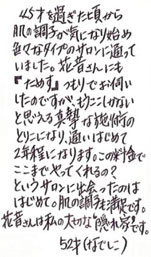 45才を過ぎた頃から
肌の調子が気になり始め
色々なタイプのサロンに通って
いました。花音さんにも
『ためす』つもりでお伺い
したのですが、もうここしかない
と思える真摯な施術の
とりこになり、通いはじめて
2年程になります。この料金で
ここまでやってくれるの？
というサロンに出会ったのは
はじめて。肌の調子も絶好調です。
花音さんは私の大切な"隠れ家"です。
52才(なでしこ)